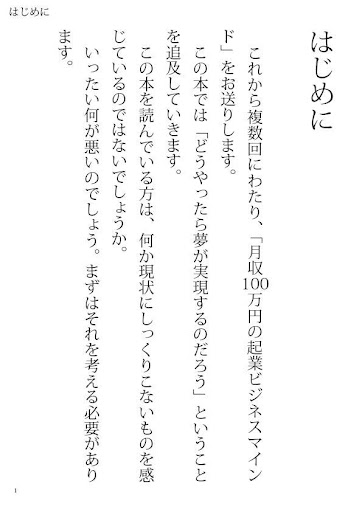 はじめに
はじめに
これから複数回にわたり、「月収100万円の起業ビジネスマイン
ド」をお送りします。
この本では「どうやったら夢が実現するのだろう」ということ
を追及していきます。
この本を読んでいる方は、何か現状にしっくりこないものを感
じているのではないでしょうか。
いったい何が悪いのでしょう。まずはそれを考える必要があり
ます。
1